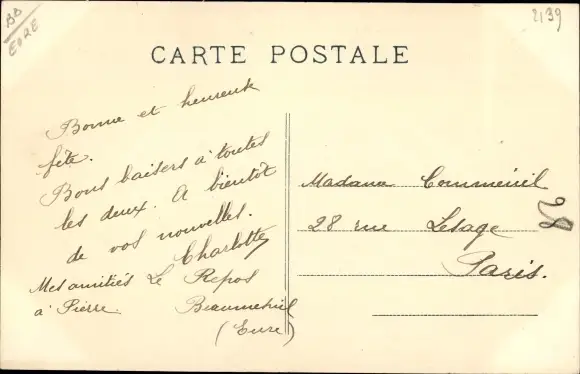 BB
EURE
2139
CARTE POSTALE
Bonne et heureuse
fête.
Bons baisers à toutes
les deux. A bientôt
de vos nouvelles.
Charlotte
Mes amitiés
à Pierre.
Le Repos
Beaumesnil
(Eure)
Madame Comménil
28 rue Lesage
Paris.
28